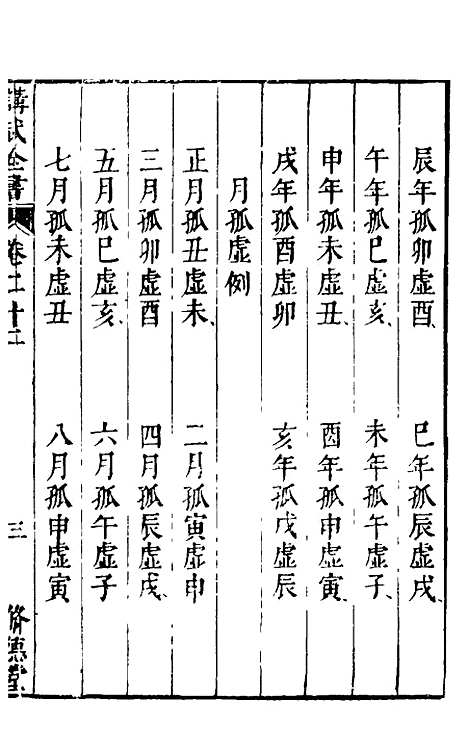 辰年孤卯虛酉、 巳年孤辰虛戌、
午年孤巳虛亥、 未年孤午虛子、
申年孤未虛丑、 酉年孤申虛寅、
戌年孤酉虛卯 亥年孤戌虛辰
月孤虛例
正月孤丑虛未、 二月孤寅虛申
三月孤卯虛酉 四月孤辰虛戌、
五月孤巳虛亥、 六月孤午虛子
七月孤未虛丑 八月孤申虛寅
講武全書 卷二十二 三 脩德堂